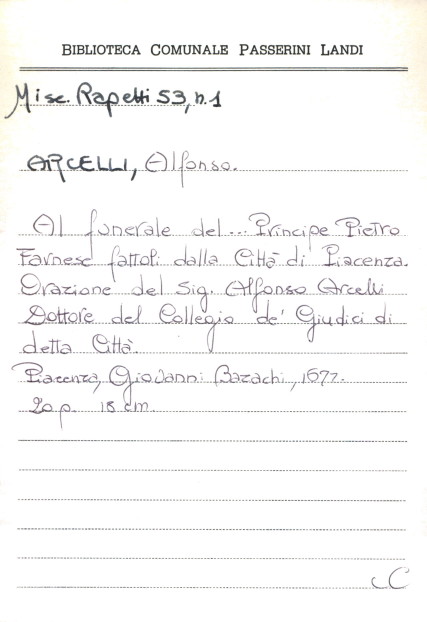 BIBLIOTECA COMUNALE PASSERINI LANDI
Misc. Rapetti 53, n.1
ARCELLI, Alfonso.
Al funerale del ... Principe Pietro
Farnese fattoli dalla Città di Piacenza.
Orazione del Sig. Alfonso Arcelli
Dottore del Collegio de' Giudici di
detta Città.
Piacenza, Giovanni Bazachi, 1677.
20 p. 18 cm.
C